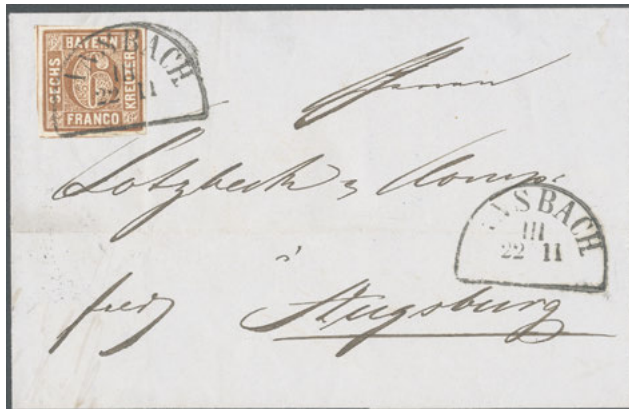 BAYERN
SECHS
6
KREUZER
FRANCO
ANSBACH
III
22 11
Herrn
Lotzbeck & Comp.
ANSBACH
III
22 11
à
frei
Augsburg